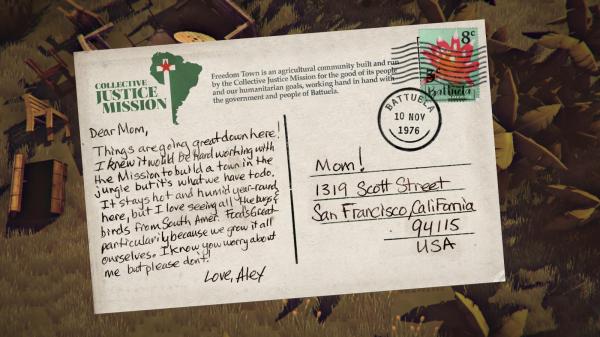 COLLECTIVE
JUSTICE
MISSION
Freedom Town is an agricultural community built and run
by the Collective Justice Mission for the good of its people
and our humanitarian goals, working hand in hand with
the government and people of Battuela.
8c
Battuela
BATTUELA
10 NOV
1976
Dear Mom,
Things are going great down here!
I knew it would be hard working with
the Mission to build a town in the
jungle but it's what we have to do.
It stays hot and humid year-round
here, but I love seeing all the bugs &
birds from South Amer. Food's Great
particularily because we grow it all
ourselves. I know you worry about
me but please don't.
Love, Alex
Mom!
1319 Scott Street
San Francisco, California
94115
USA